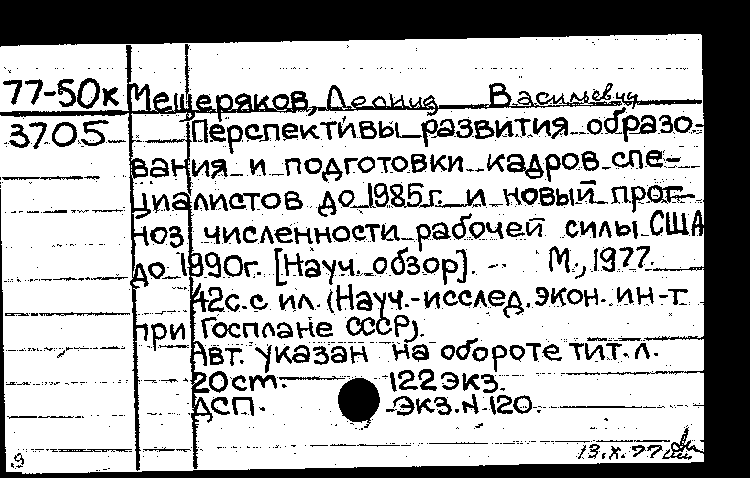 77-50к Мещеряков, Леонид Васильевич
3705 Перспективы развития образо-
вания и подготовки кадров спе-
циалистов до 1985г. и новый прог-
ноз численности рабочей силы США
до 1990г. [Науч. обзор]. -- М., 1977.
42с. с ил. (Науч.-исслед. экон. ин-т
при Госплане СССР).
Авт. указан на обороте тит. л.
20 ст. 122 экз.
ДСП. Экз. N 120.
13.X.77
9